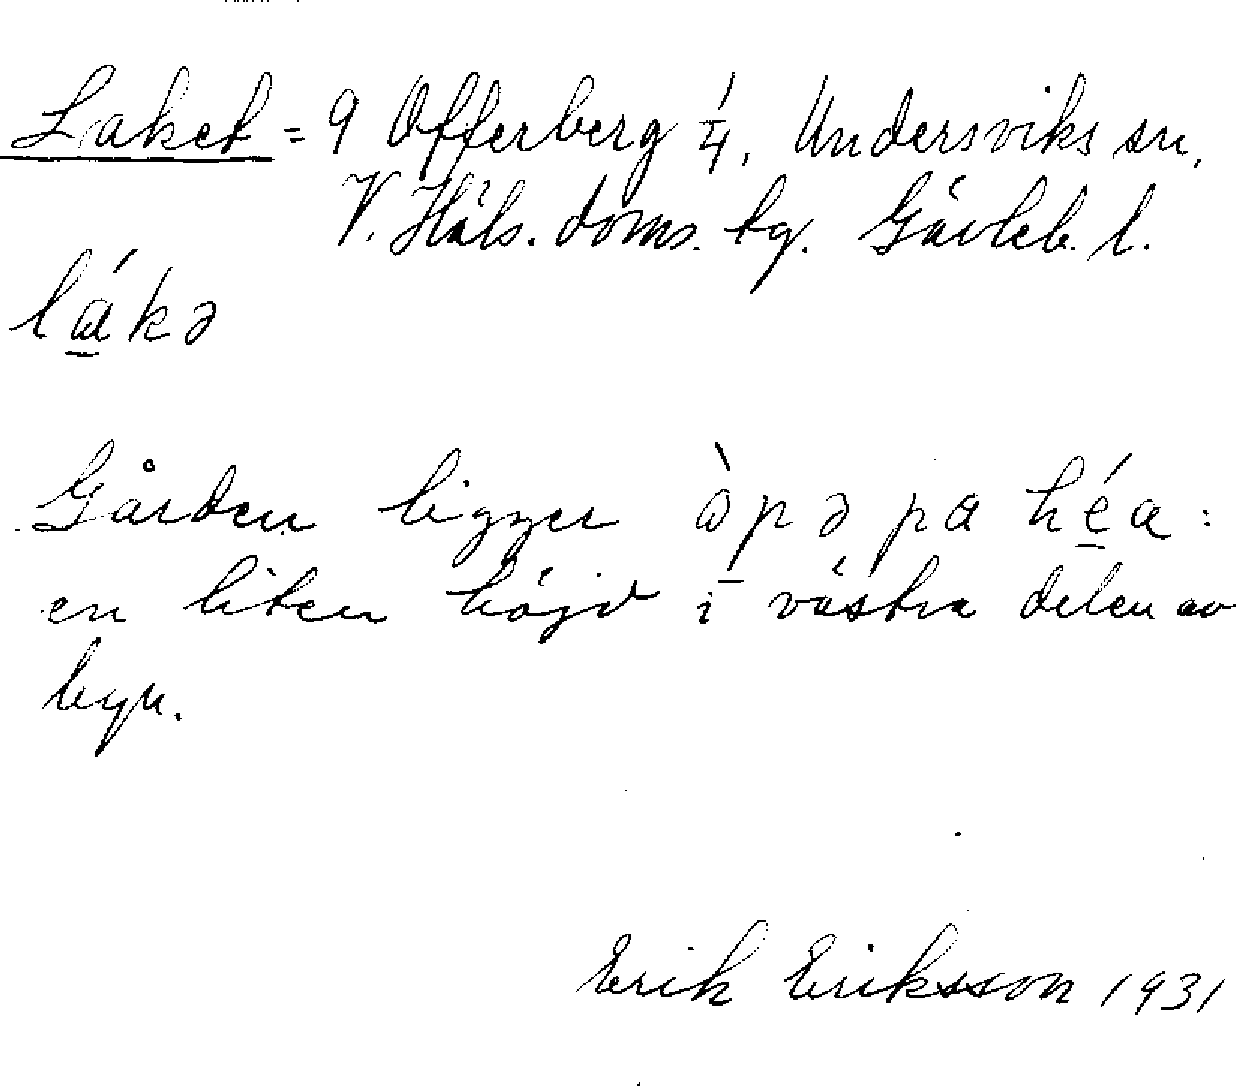 Laket = 9 Offerberg 1/4, Undersviks sn,
V. Häls. doms. tg. Gävleb. l.
lákə
Gården ligger òpə pa héa:
en liten höjd i västra delen av
byn.
Erik Eriksson 1931